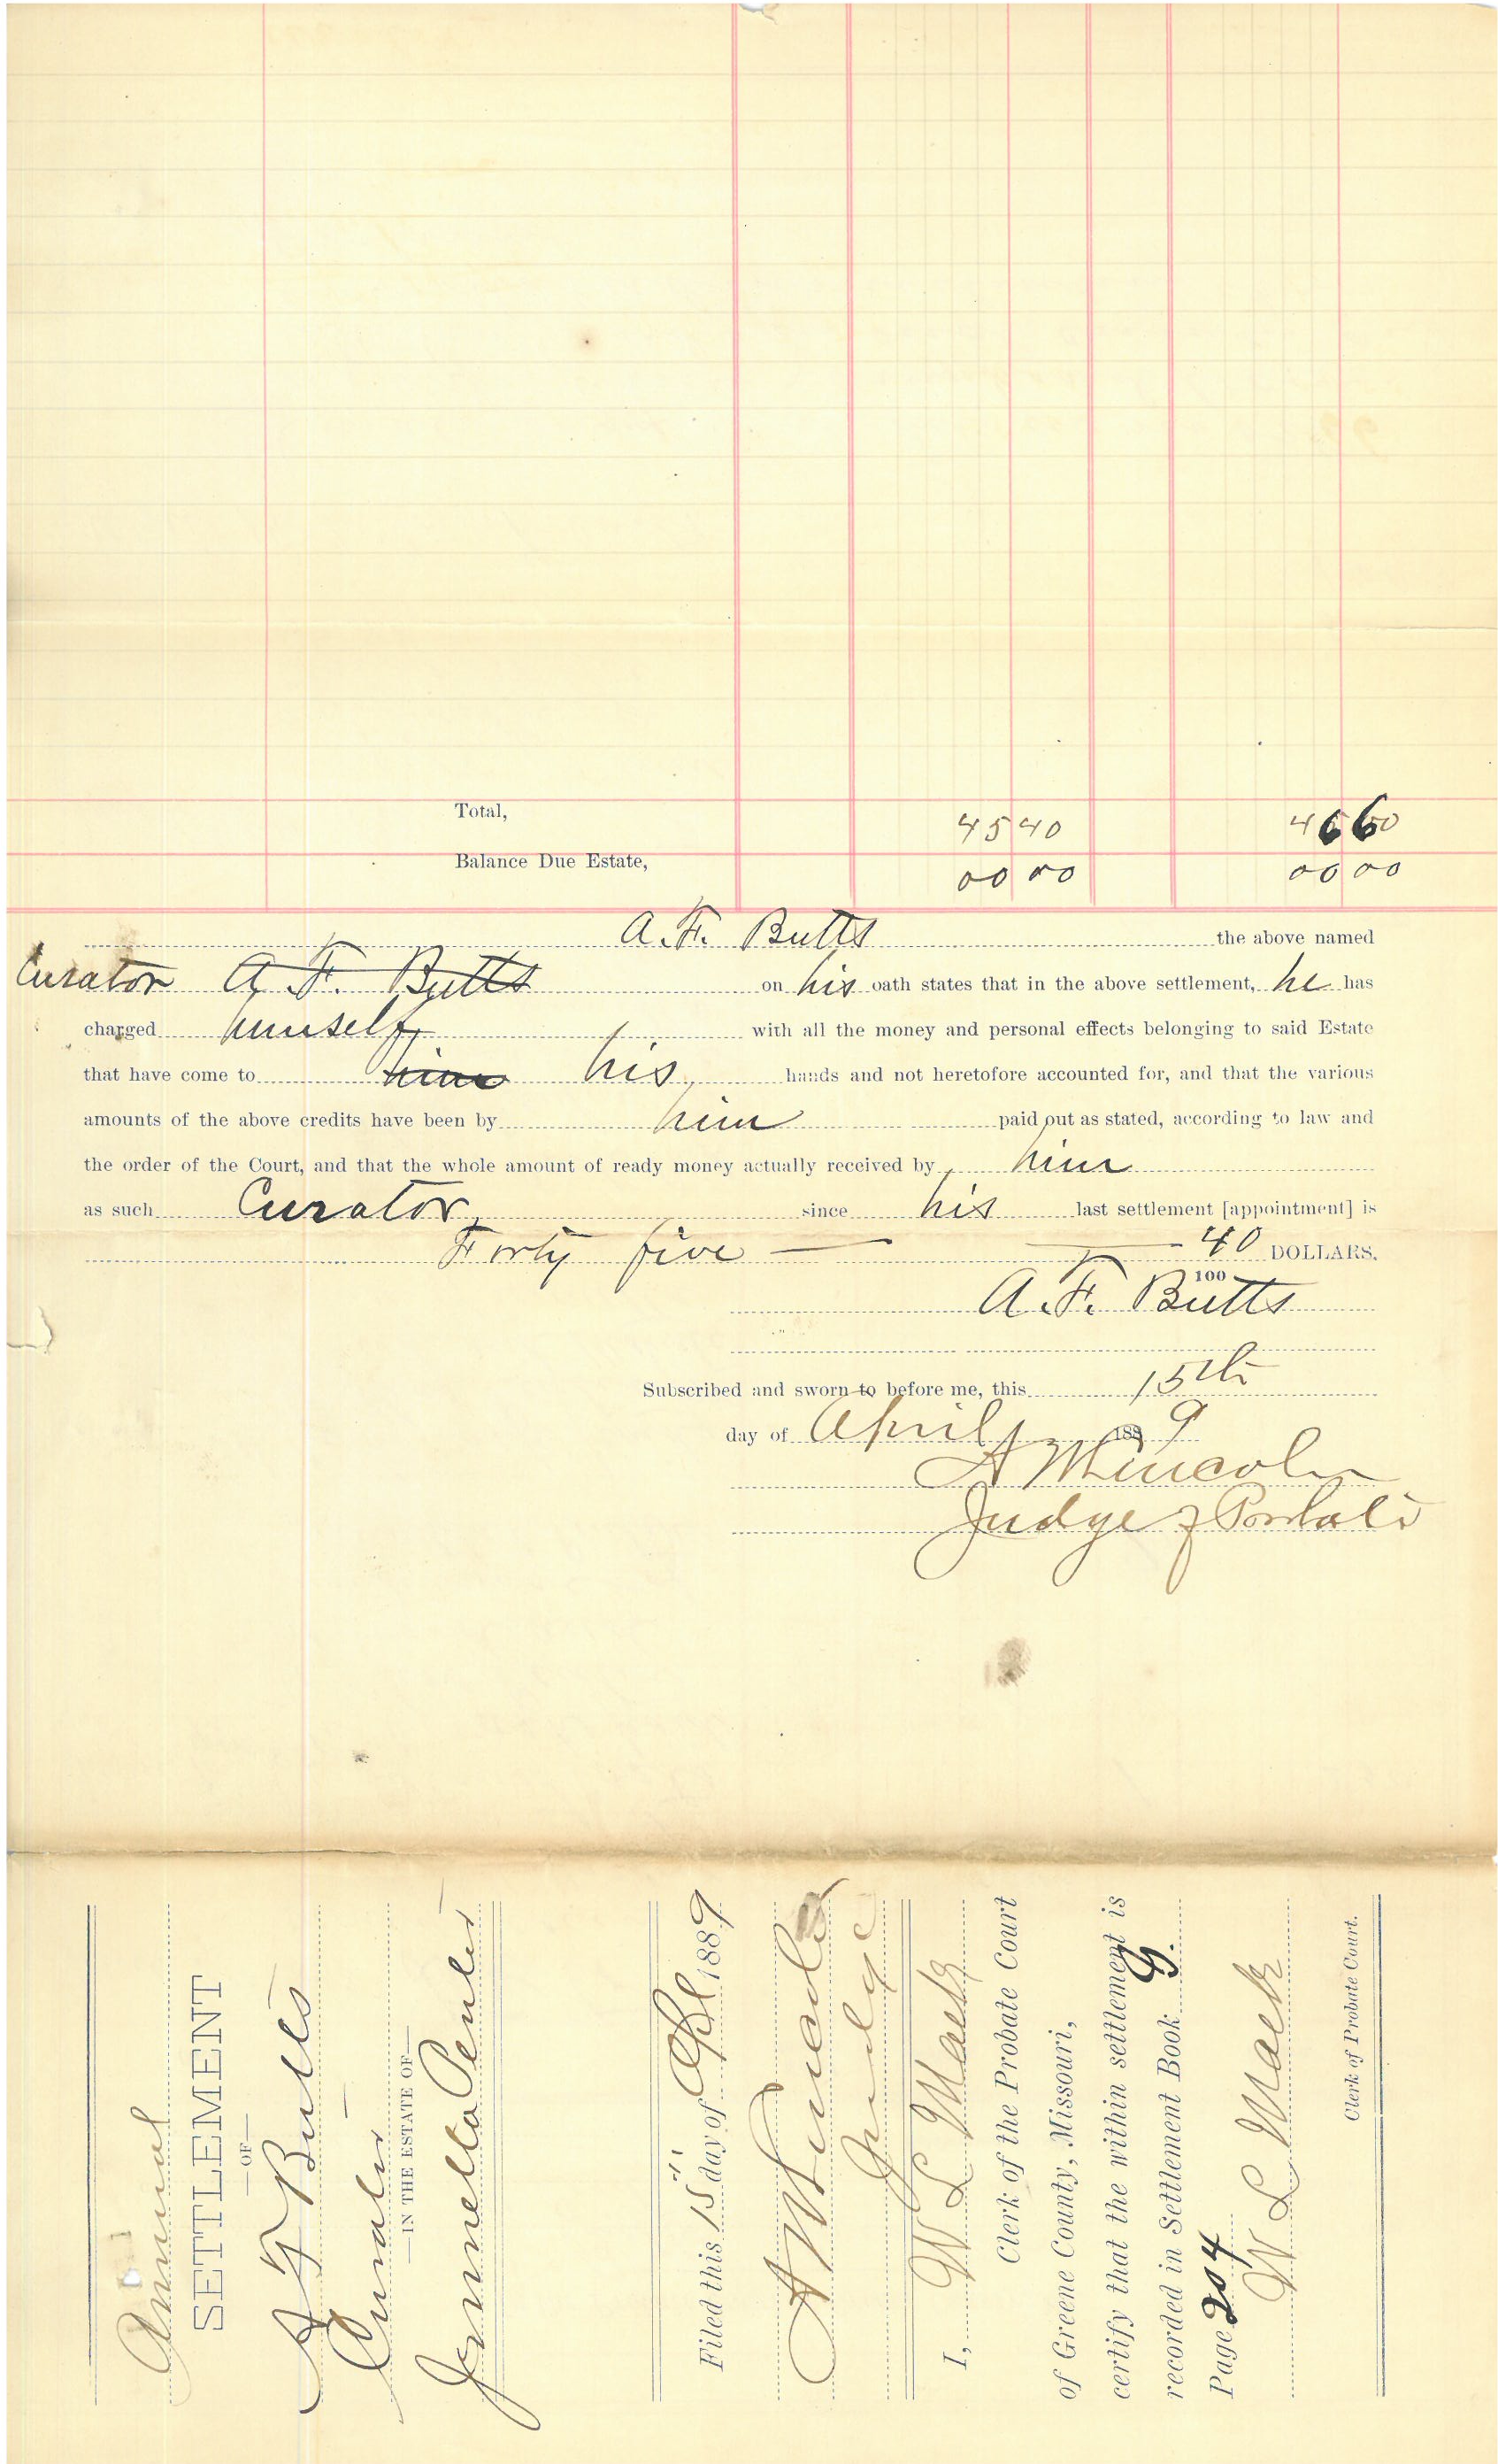 Total, 45 40 46 60
Balance Due Estate, 00 00 00 00
A. F. Butts the above named
Curator A. F. Butts on his oath states that in the above settlement, he has
charged himself with all the money and personal effects belonging to said Estate
that have come to him his hands and not heretofore accounted for, and that the various
amounts of the above credits have been by him paid out as stated, according to law and
the order of the Court, and that the whole amount of ready money actually received by him
as such Curator since his last settlement [appointment] is
Forty five 40 DOLLARS.
100
A. F. Butts
Subscribed and sworn to before me, this 15th
day of April 1889
A M Lincoln
Judge of Probate
Annual
SETTLEMENT
—OF—
A F Butts
Curator
—IN THE ESTATE OF—
Filed this 15 day of Apl 1889
A M Lincoln
Judge
I, W L Mack
Clerk of the Probate Court
of Greene County, Missouri,
certify that the within settlement is
recorded in Settlement Book
Page 204
W L Mack
Clerk of Probate Court.